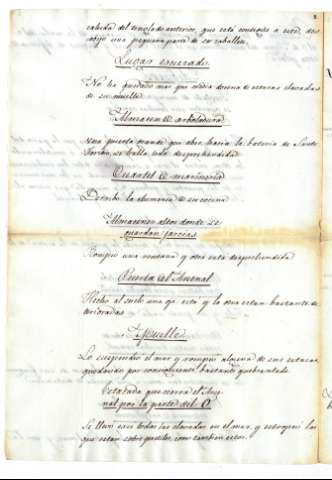 caheda del tinglado anterior, que está contiguo a este, des
afijo una pequeña parte de su caballete.
Lugar escusado
No ha quedado mas que media docena de estacas clavadas
de su muelle.
Almacen de arboladura
Una puerta grande que abre hacia la batería de Santo
Tomas, se halla toda desprehendida
Quartel de marinería
Derribó la chimenea de su cocina
Almacenes altos donde se
guardan jarcias
Rompió una ventana y otra está desprehendida
Puerta del Arsenal
Hecho al suelo una oja esta y la otra estan bastante de
terioradas
Muelle
Lo suspendió el mar y rompió alguna de sus estacas
quedando por consiguiente bastante quebrantado.
Estacada que cierra el Arse
nal por la parte del O.
Se llevó casi todas las clavadas en el mar, y estropeó las
que estan sobre pretiles como tambien estos.